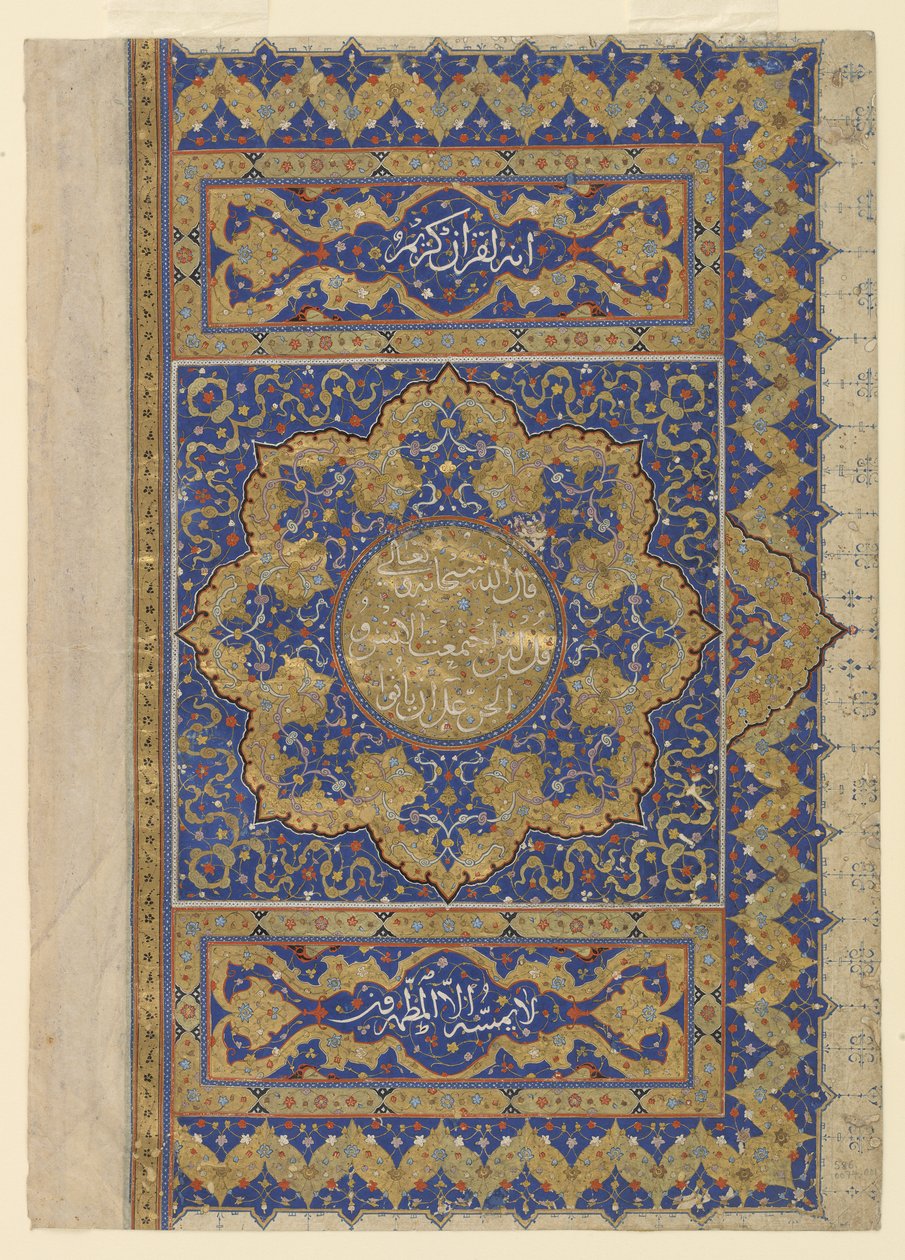 انه لقرآن كريم
قال الله سبحانه و تعالى
قل لئن اجتمعت الانس و
الجن على ان يأتوا
لا يمسّه الّا المطهرون